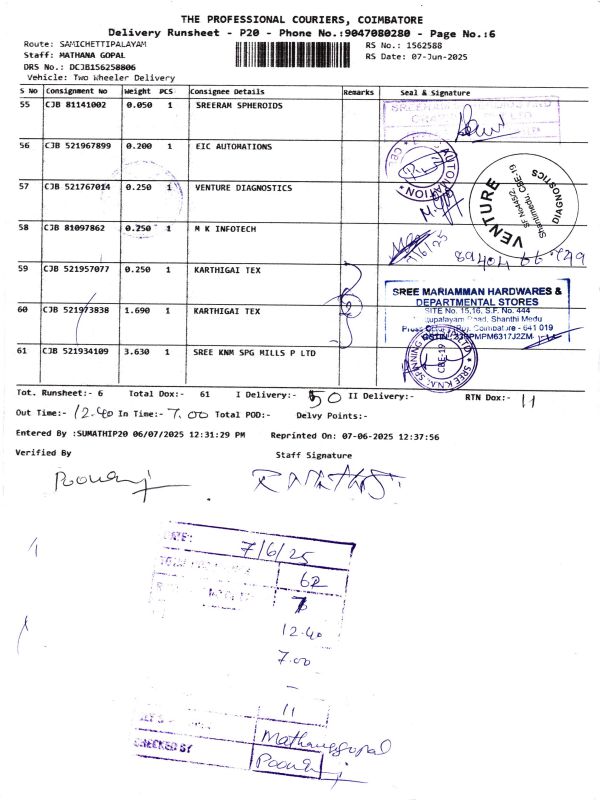 THE PROFESSIONAL COURIERS, COIMBATORE
Delivery Runsheet - P20 - Phone No.:9047080280 - Page No.:6
Route: SAMICHETTIPALAYAM
RS No.: 1562588
Staff: MATHANA GOPAL
RS Date: 07-Jun-2025
DRS No.: DCJB156258806
Vehicle: Two Wheeler Delivery
S No Consignment No Weight PCS Consignee Details Remarks Seal & Signature
55 CJB 81141002 0.050 1 SREERAM SPHEROIDS
56 CJB 521967899 0.200 1 EIC AUTOMATIONS
57 CJB 521767014 0.250 1 VENTURE DIAGNOSTICS
VENTURE DIAGNOSTICS
SF No445/2,
Shanthimedu, CBE-19
58 CJB 81097862 0.250 1 M K INFOTECH
7/6/25
59 CJB 521957077 0.250 1 KARTHIGAI TEX
SREE MARIAMMAN HARDWARES &
DEPARTMENTAL STORES
SITE No. 15,16, S.F. No. 444
Road, Shanthi Medu
Coimbatore - 641 019
60 CJB 521973838 1.690 1 KARTHIGAI TEX
61 CJB 521934109 3.630 1 SREE KNM SPG MILLS P LTD
CBE-19
Tot. Runsheet:- 6 Total Dox:- 61 I Delivery:- 50 II Delivery:- RTN Dox:- 11
Out Time:- 12.40 In Time:- 7.00 Total POD:- Delvy Points:-
Entered By :SUMATHIP20 06/07/2025 12:31:29 PM Reprinted On: 07-06-2025 12:37:56
Verified By Staff Signature
7/6/25
62
7
12.40
7.00
-
11
Mathanggopal
CHECKED BY